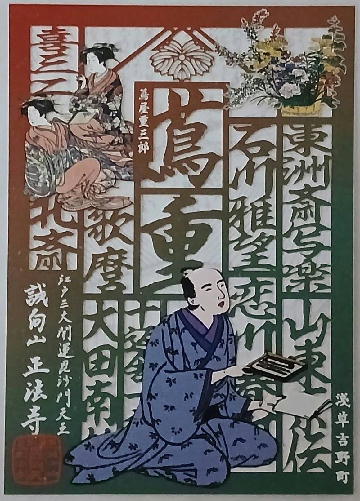 東洲斎写楽
山東京伝
石川雅望
恋川春
蔦屋重三郎
蔦重
喜三二
歌麿
北斎
大田南畝
十返舎一
江戸三大開運毘沙門天王
誠向山 正法寺
浅草吉野町